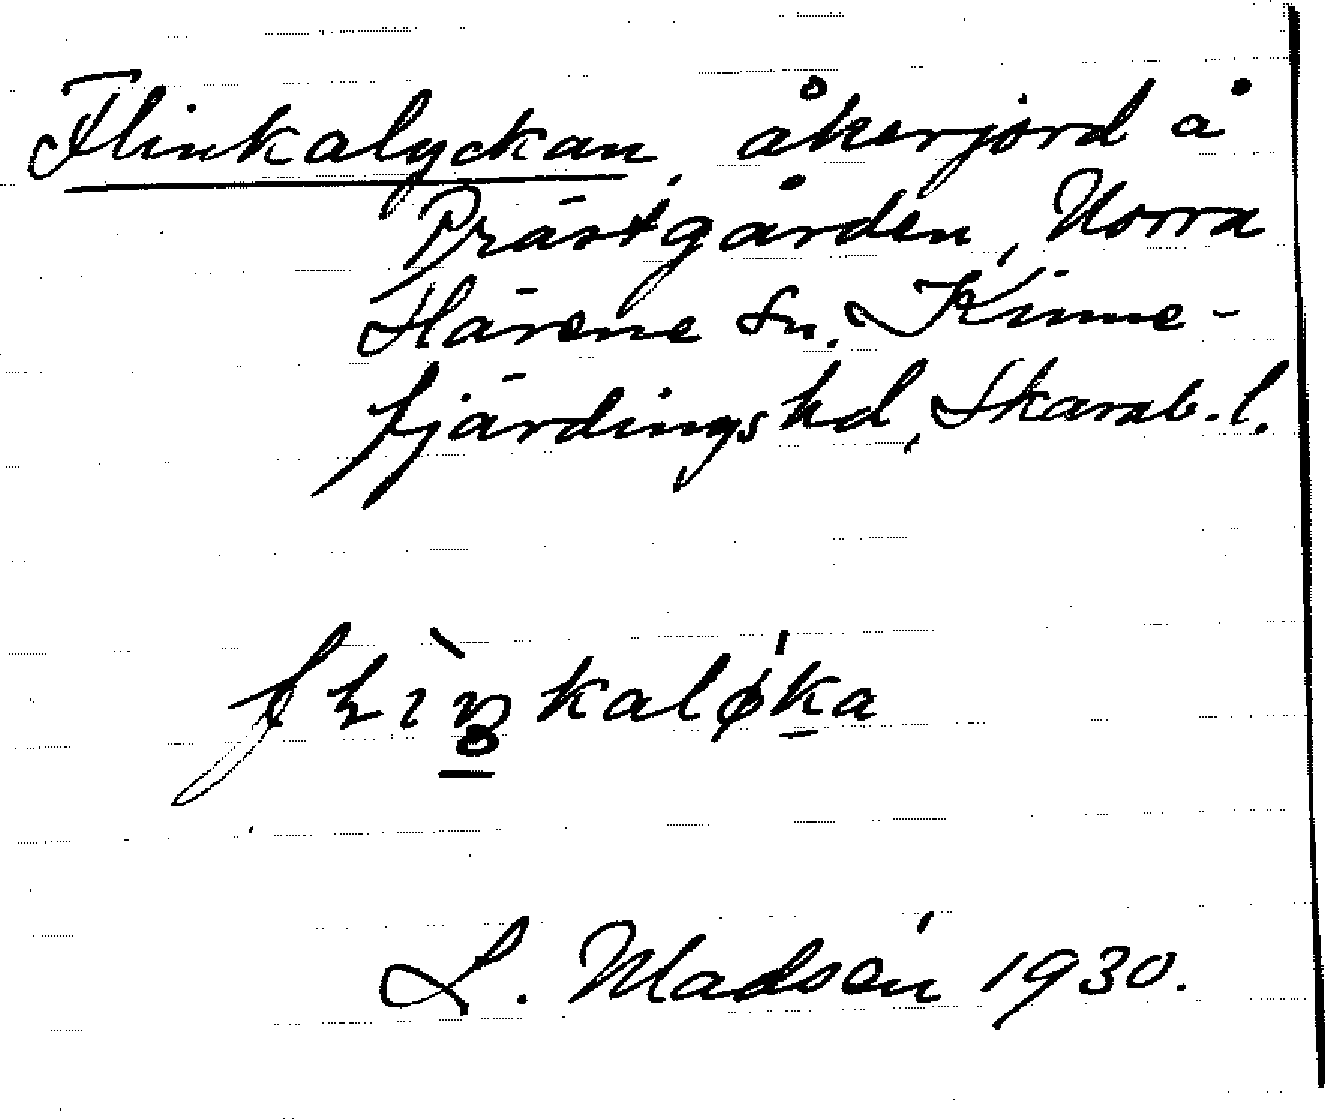 Flinkalyckan, åkerjord å
Prästgården, Norra
Härene sn. Kinne-
fjärdingshd, Skarab. l.
flìŋkaløka
L. Madsén 1930.